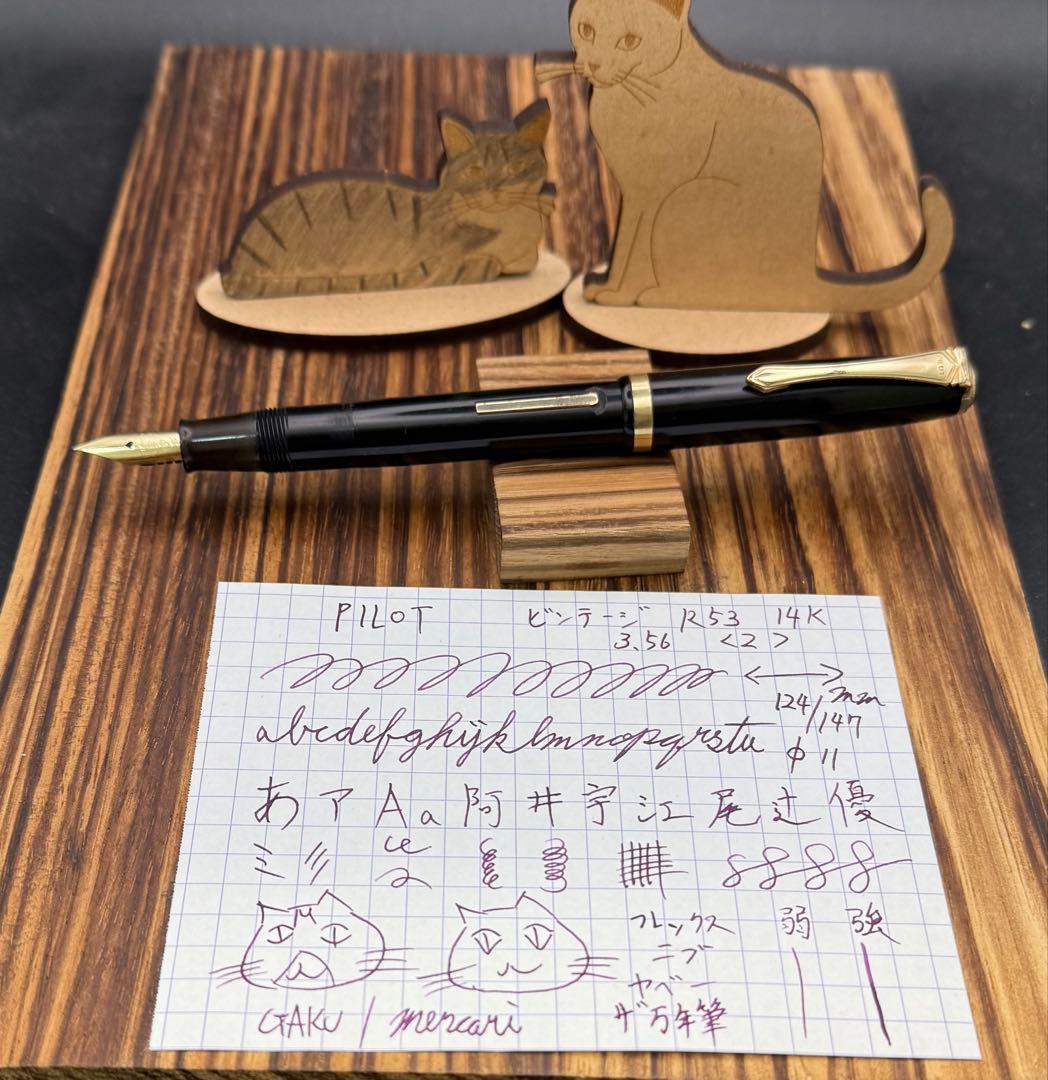 PILOT ビンテージ R53 14K
3.56 <2>
124/147 mm
abcdefghijklmnopqrstu φ11
あ ア A a 阿 井 宇 江 尾 辻 優
フレックス 弱 強
ニブ
ヤベー
ザ万年筆
GAKU / mercari